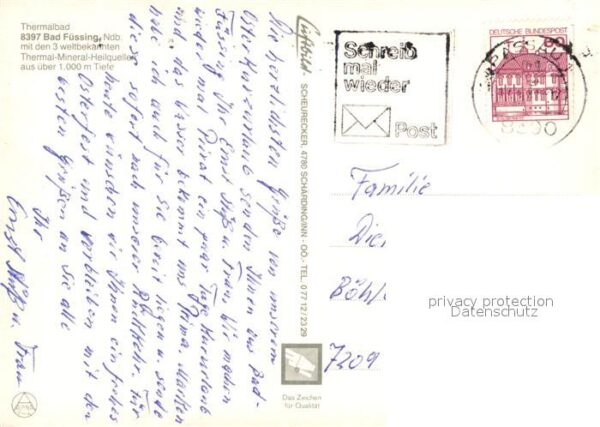 Thermalbad
8397 Bad Füssing, Ndb.
mit den 3 weltbekannten
Thermal-Mineral-Heilquellen
aus über 1.000 m Tiefe
Die herzlichsten Grüße von unserem
Osterkurzurlaub senden Ihnen aus Bad-
Füssing Ihr Ernst u. Frau. Wir machen
wieder mal Privat ein paar Tage Kururlaub
und das Wasser bekommt uns Prima. Marken
habe ich auch für Sie bereit liegen u. sende
diese sofort nach unserer Rückkehr. Für
Heute wünschen wir Ihnen ein frohes
Osterfest und verbleiben mit den
besten Grüßen an Sie alle
Ihr
Ernst u. Frau
Luftbild - SCHEURECKER, 4780 SCHÄRDING/INN - OÖ.- TEL. 0 77 12 / 23 29
Das Zeichen
für Qualität
Schreib
mal
wieder
Post
DEUTSCHE BUNDESPOST
PASSAU
Familie
7209
privacy protection
Datenschutz